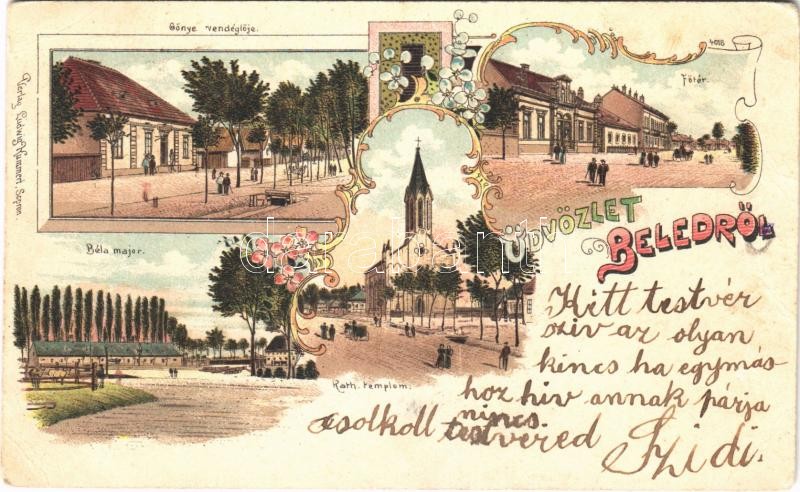 Gőnye vendéglője.
4018
Főtér.
Verlag Ludwig Kummert, Sopron.
ÜDVÖZLET
BELEDRŐL
Béla major.
Kath. templom.
Hitt testvér
sziv az olyan
kincs ha egymás-
hoz hiv annak párja
nincs
csolkoll testvered Szidi.